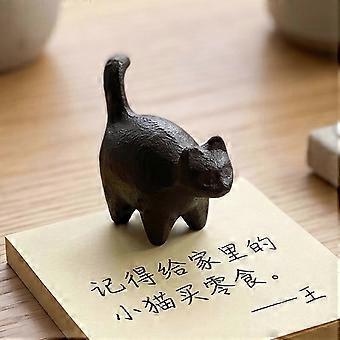 记得给家里的
小猫买零食。
——王